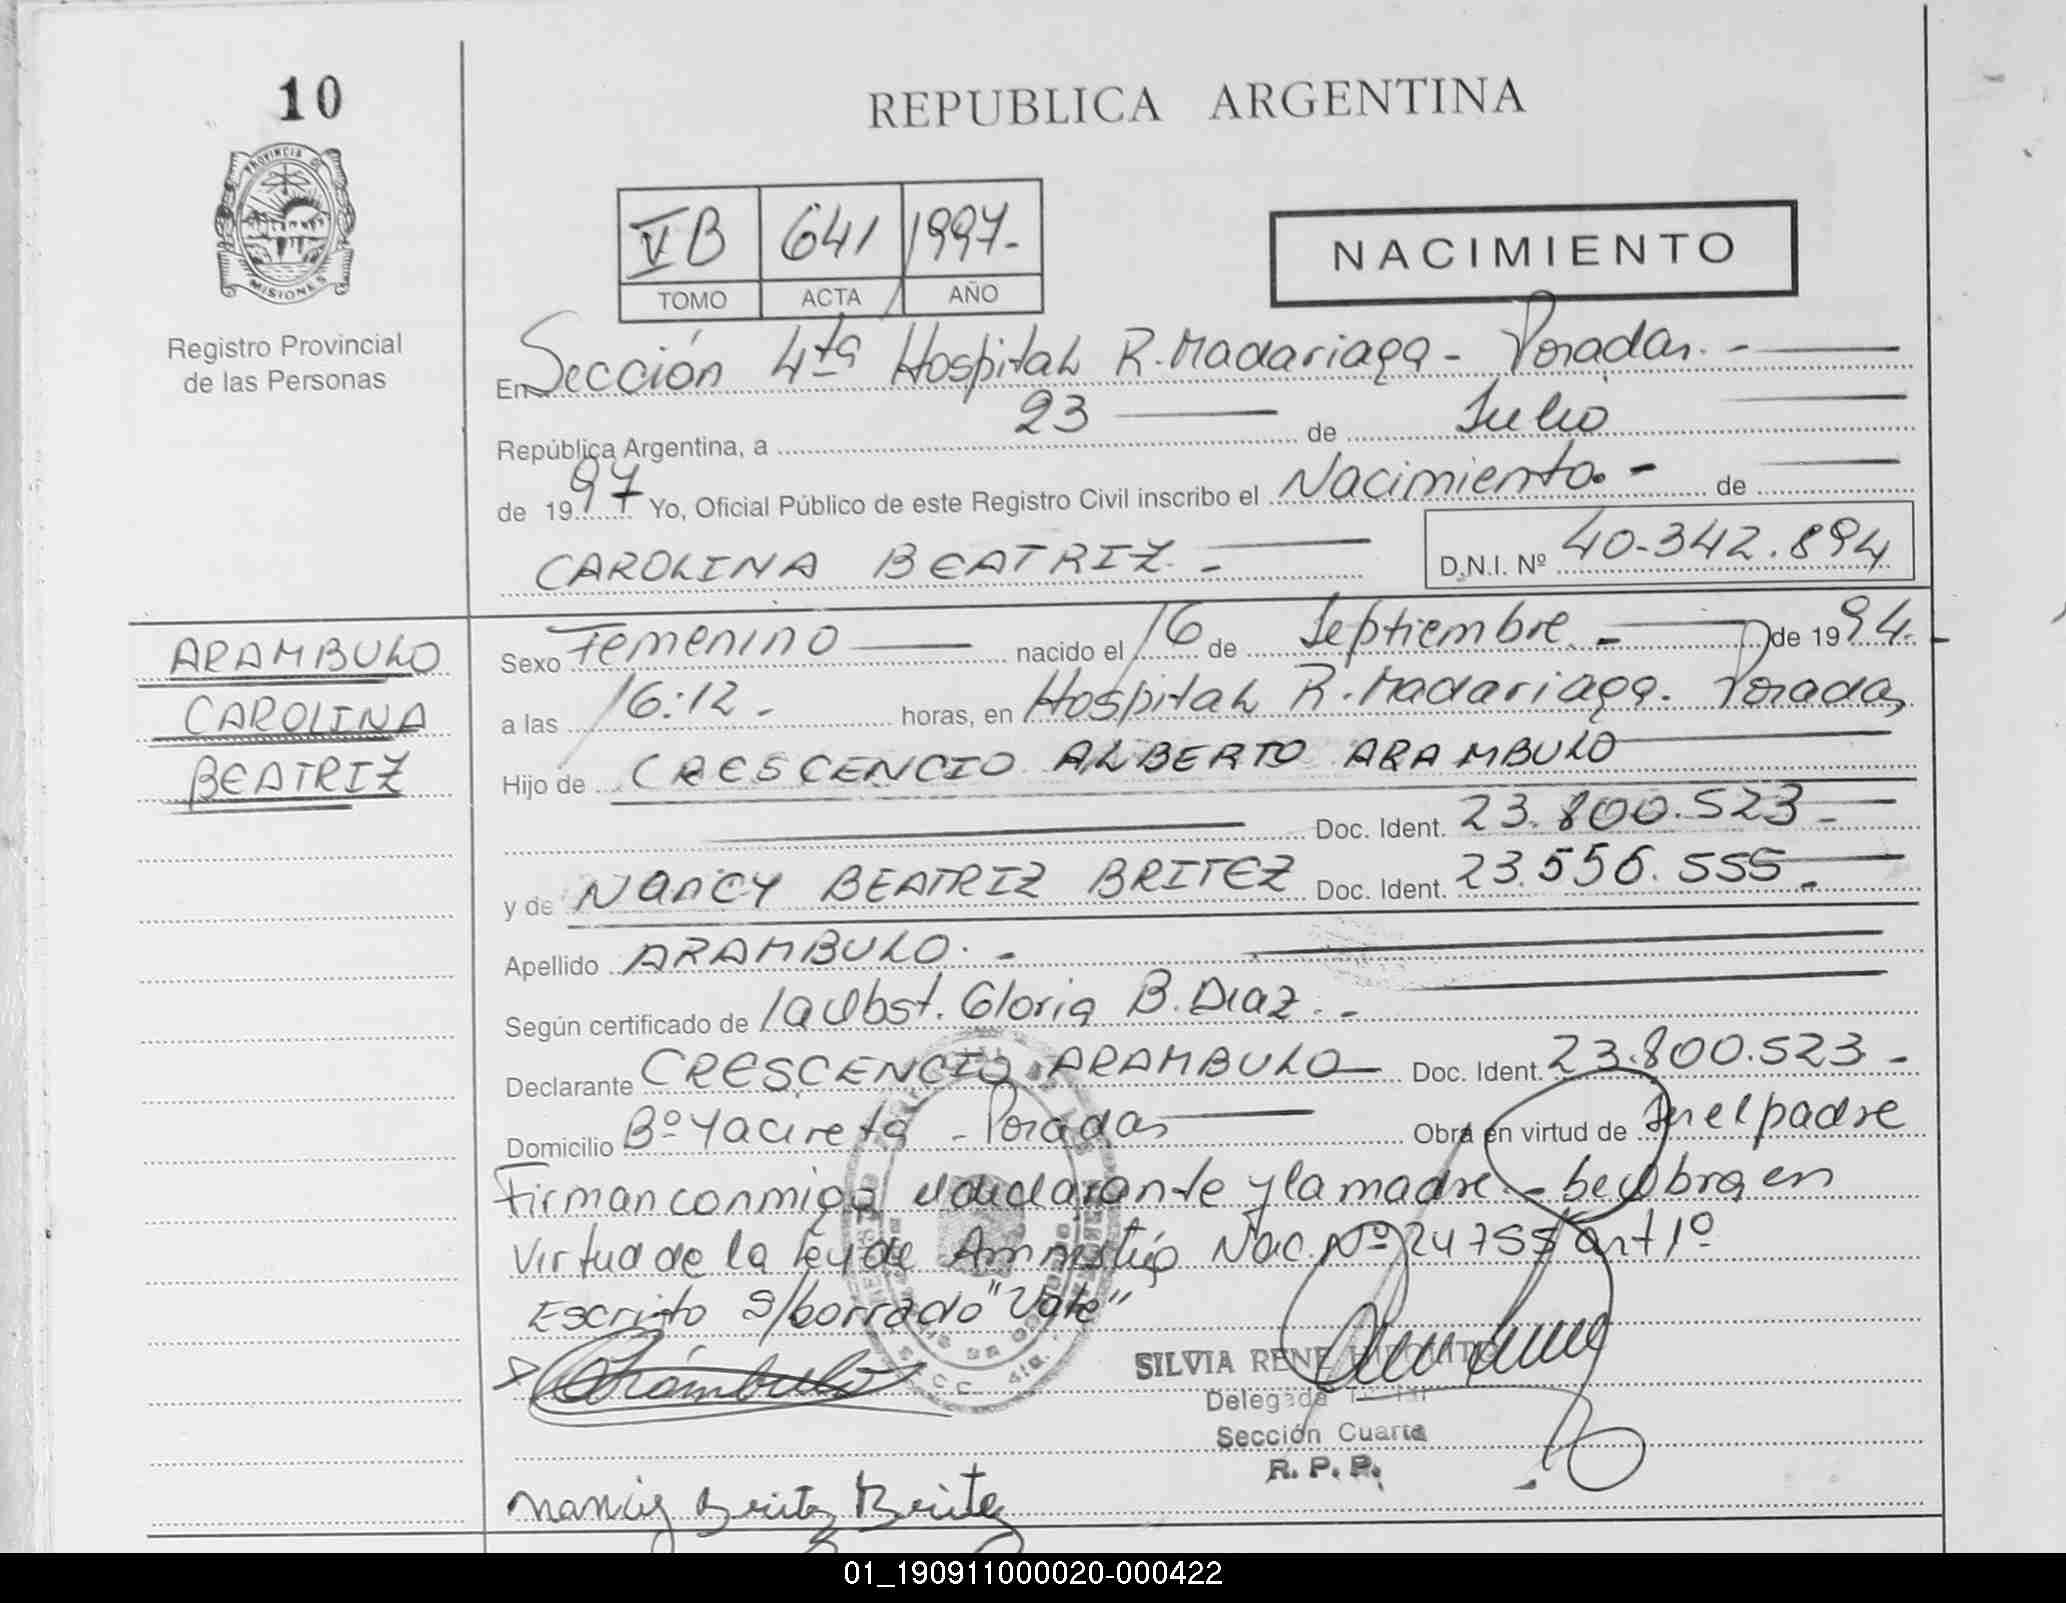 10
REPUBLICA ARGENTINA
PROVINCIA DE
MISIONES
Registro Provincial
de las Personas
VB 641 1997.-
TOMO ACTA AÑO
NACIMIENTO
En Sección 4ta Hospital R. Madariaga - Posadas. -
República Argentina, a 23 de Julio
de 1997 Yo, Oficial Público de este Registro Civil inscribo el Nacimiento. - de
CAROLINA BEATRIZ. - D.N.I. Nº 40.342.894
ARAMBULO
CAROLINA
BEATRIZ
Sexo Femenino nacido el 16 de Septiembre. - de 1994.-
a las 16:12. - horas, en Hospital R. Madariaga. Posadas
Hijo de CRESCENCIO ALBERTO ARAMBULO
Doc. Ident. 23.800.523 -
y de NANCY BEATRIZ BRITEZ Doc. Ident. 23.556.555. -
Apellido ARAMBULO. -
Según certificado de la Obst. Gloria B. Diaz. -
Declarante CRESCENCIO ARAMBULO Doc. Ident. 23.800.523 -
Domicilio Bº Yacireta - Posadas Obra en virtud de Ser el padre
Firman conmigo el declarante y la madre. - Se Obra en
Virtud de la Ley de Amnistía Nac. Nº 24755 art 1º
Escrito s/borrado "Vale"
Arámbulo
SILVIA RENE
Delegada
Sección Cuarta
R. P. P.
Nancy Britez Britez
01_190911000020-000422